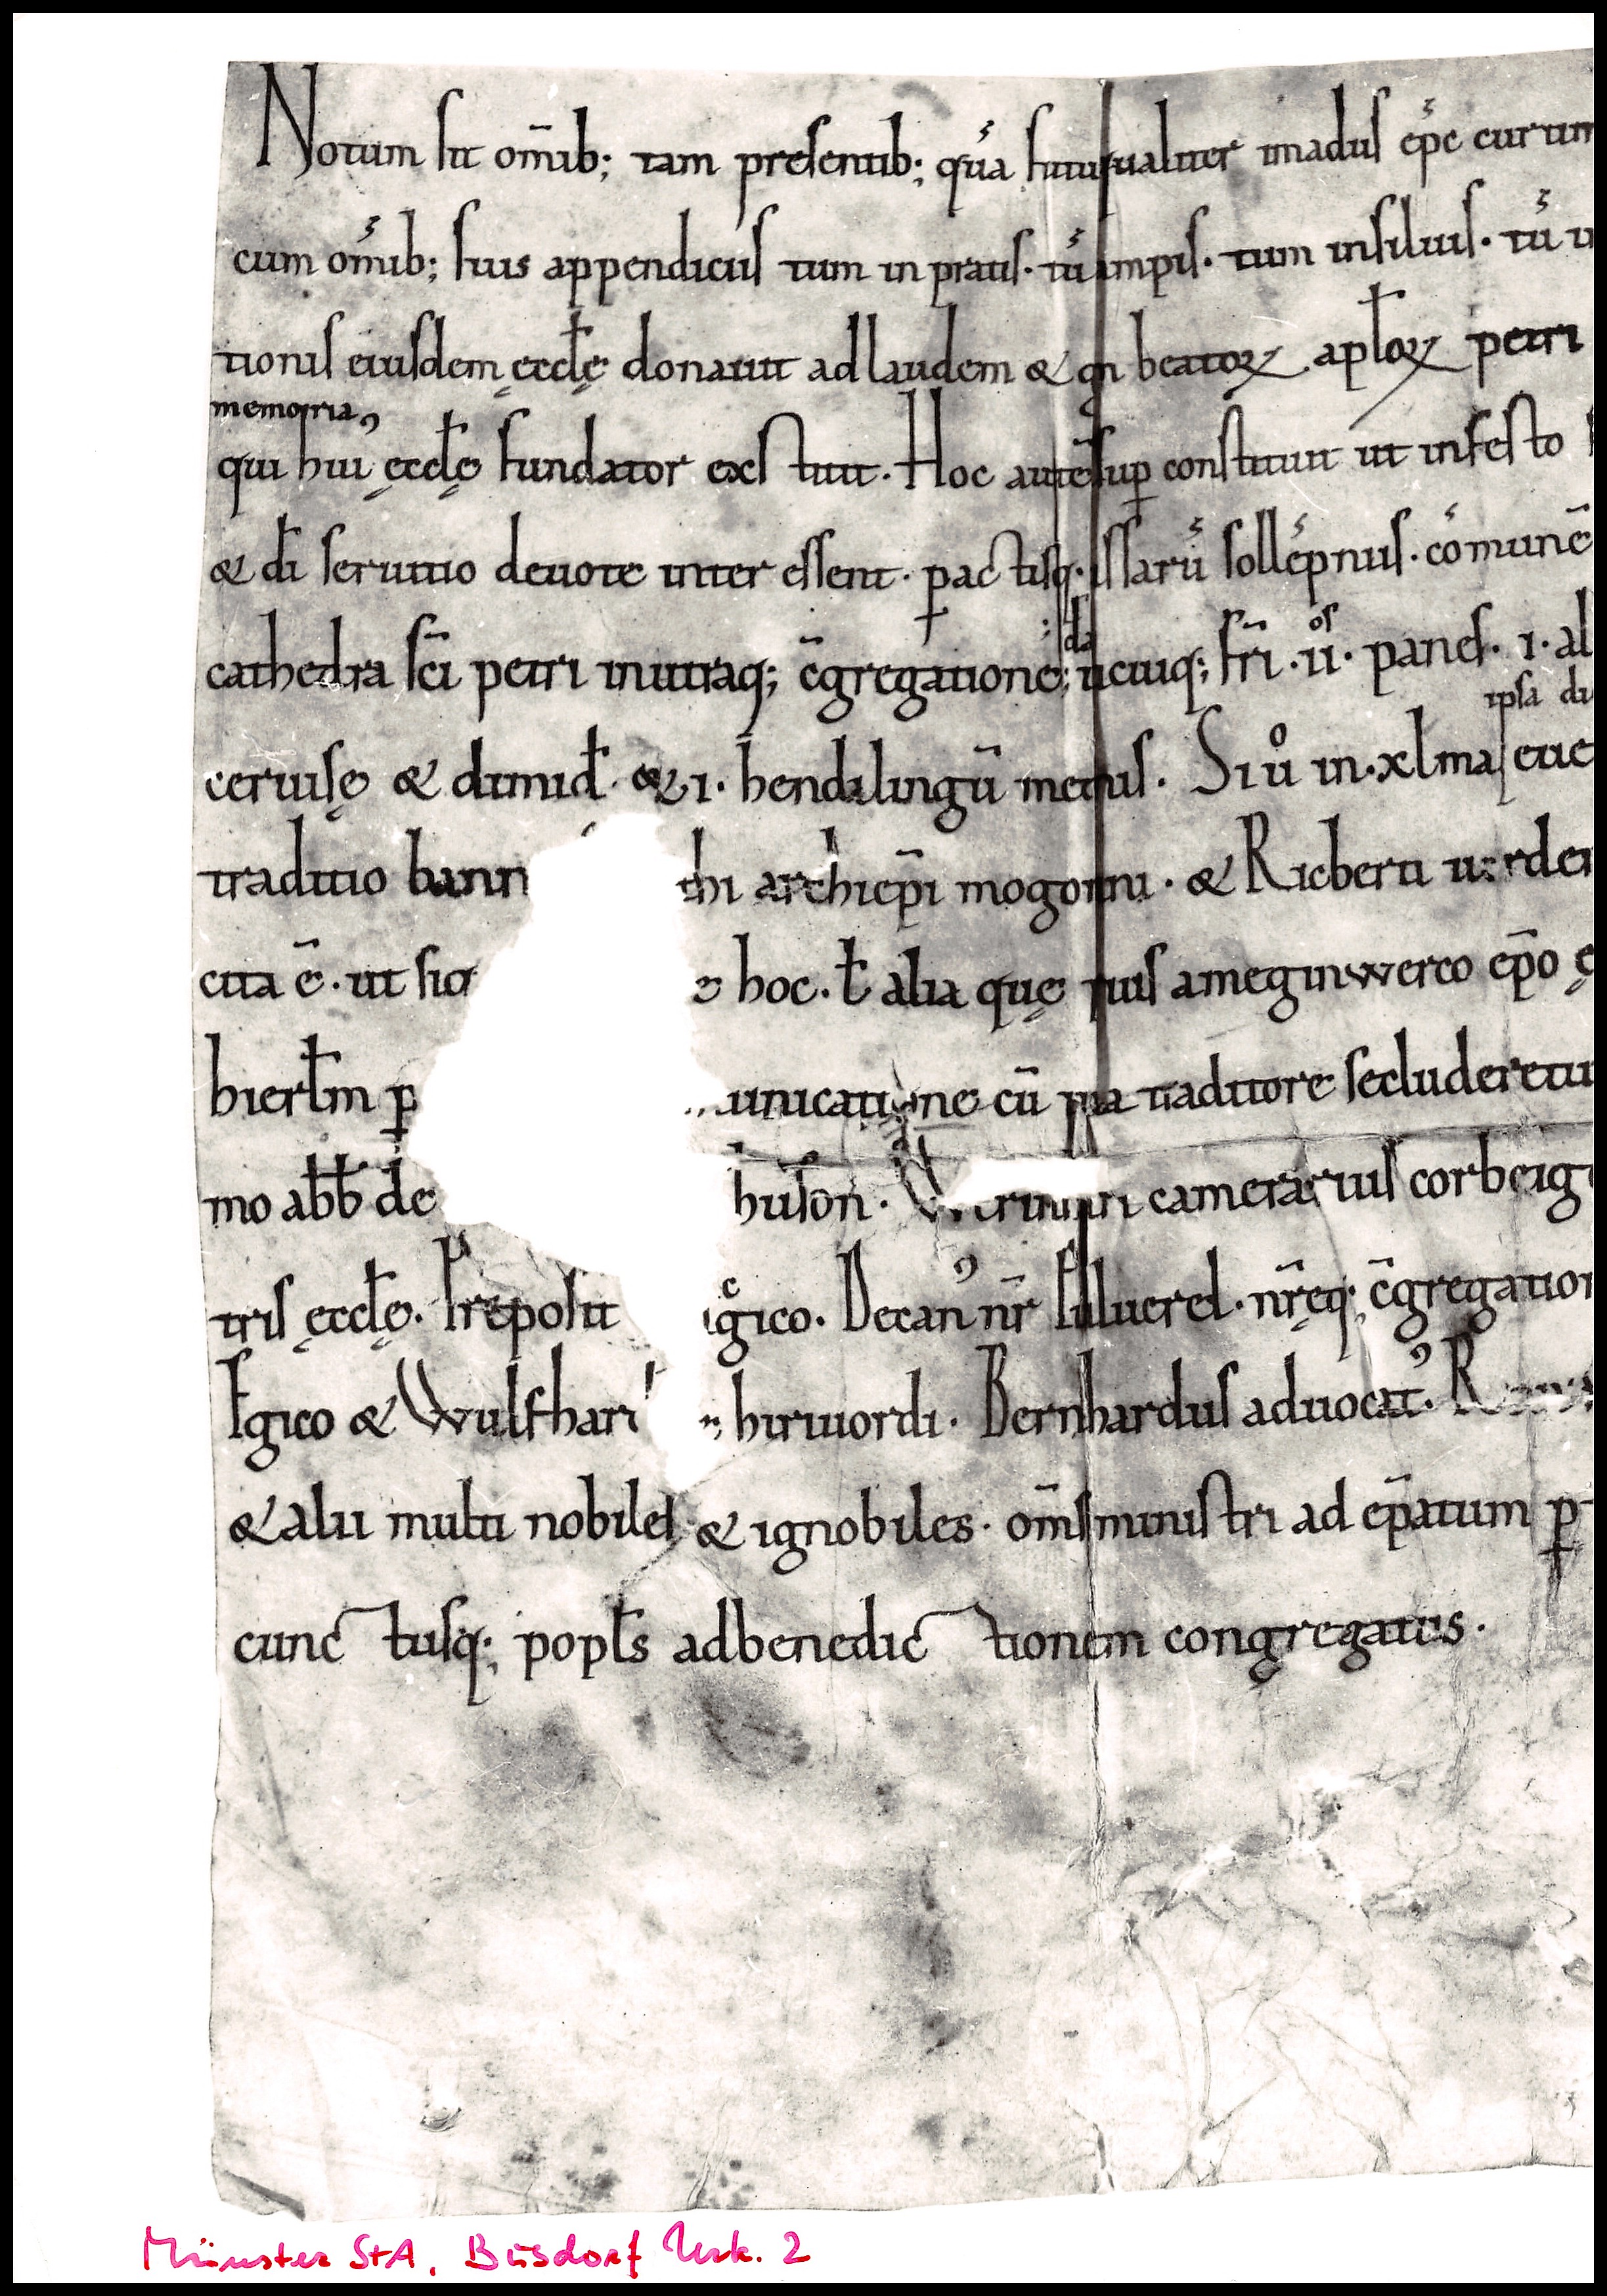 Notum sit om̄ib; tam presentib; quā futuris qualiter imadus ep̄c curtim
cum om̄ib; suis appendiciis tum in pratis. tū campis. tum insiluis. tū
tionis eiusdem ęccłę donauit ad laudem & hon beatoꝝ apłoꝝ petri
memoria,
qui hui' ęccłę fundator exstitit. Hoc autē sup constituit ut infesto
& dī seruitio deuote inter essent. pactisq; missarū sollēpniis. cōmunē
cathedra sc̄i petri inutraq; c̄gregatione; da unicuiq; fr̄i .ii.os panes. i. al
ipsa di
ceruisę & dimid̵ & i. hendilingū metiis. Si uº in .xlma eue
traditio bann thi archiep̄i mogontini. & Ricberti uerden
cita ē. ut siq e hoc. ł alia quę prius ameginwerco ep̄o ę
hierłm ꝑ unicatione cū ipsa traditore secluderetur
mo abb̄ de huson. camerarius corbeig
tris ęccłę. Prepositi Decan' nr̄ Filuered. nr̄ęq; c̄gregation
Egico & Wulfhari hiruuordi. Bernhardus aduocat'. R
& alii multi nobiles & ignobiles. om̄s ministri ad ep̄atum ꝑ
cunctisq; popłs adbenedictionem congregatis.
Münster StA, Busdorf Urk. 2